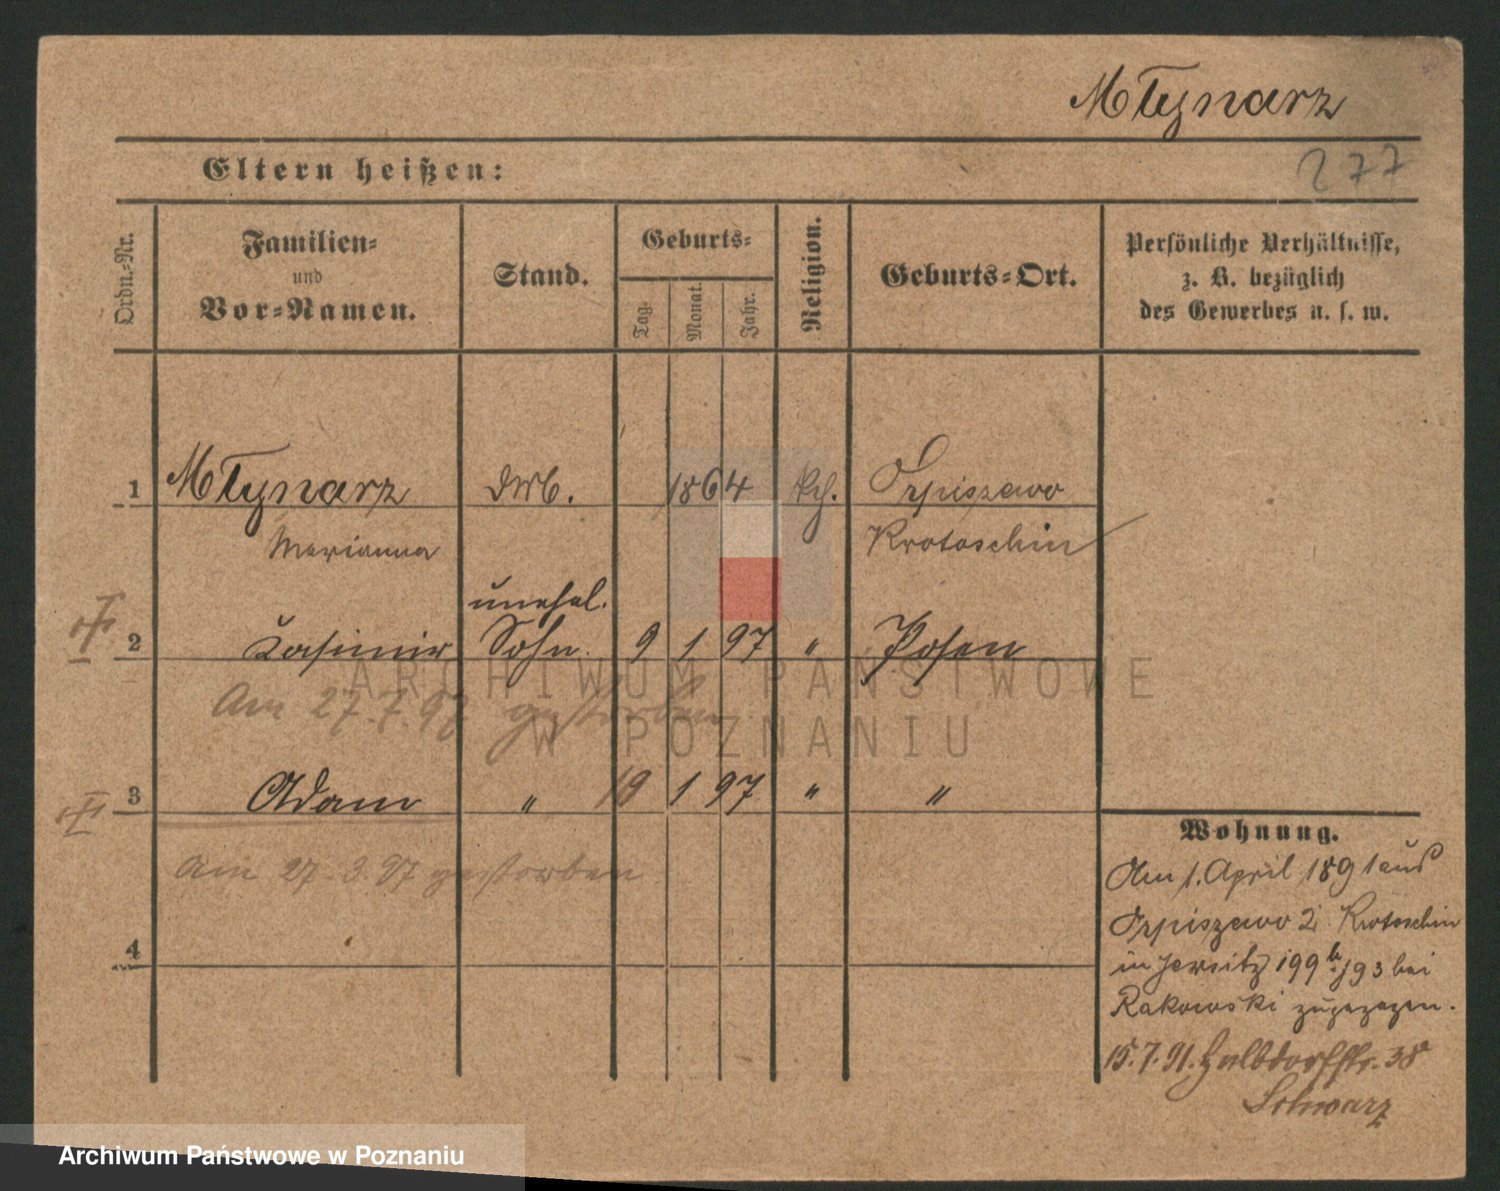 Młynarz
277
Eltern heißen:
Ordn.-Nr.
Familien-
und
Vor-Namen.
Stand.
Geburts-
Tag.
Monat.
Jahr.
Religion.
Geburts-Ort.
Persönliche Verhältnisse,
z. B. bezüglich
des Gewerbes u. s. w.
1 Młynarz 1864 Orpiszewo
Marianna Krotoschin
unehel.
2 Kasimir Sohn. 9 1 97 " Posen
Am 27.7.97 gestorben
3 Adam " 19 1 97 " "
Am 27.3.97 gestorben
4
Wohnung.
Am 1. April 1891 aus
Orpiszewo Krotoschin
in Jersitz 199 b/93 bei
Rakowski zugezogen.
15.7.91. Halbdorfstr. 38
Schwarz
ARCHIWUM PAŃSTWOWE
W POZNANIU
Archiwum Państwowe w Poznaniu